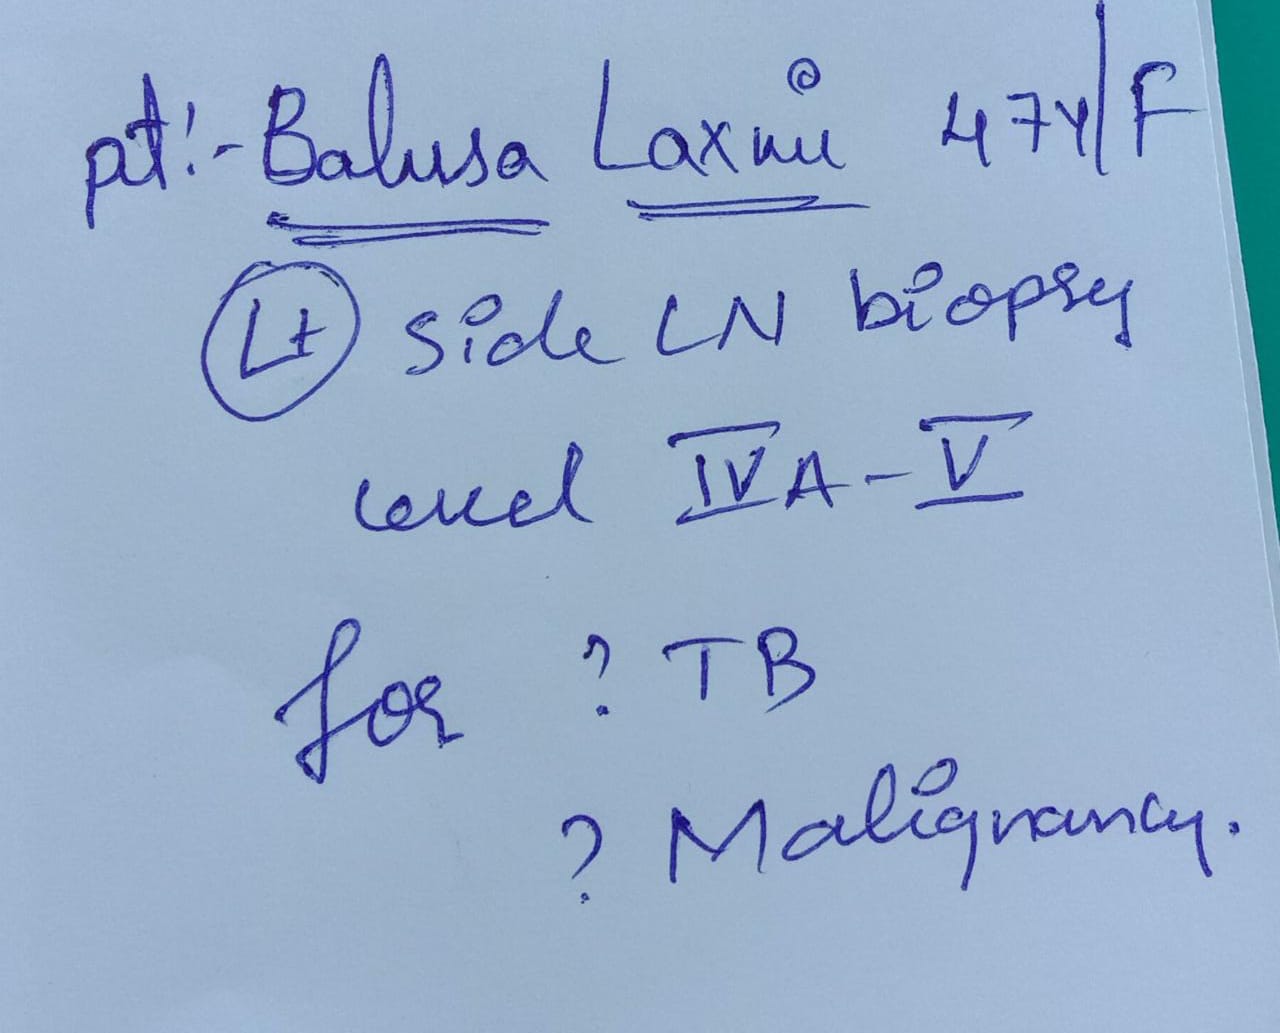 pt:- Balusa Laxmi 47Y/F
Lt side LN biopsy
level IVA-V
for ? TB
? Malignancy.